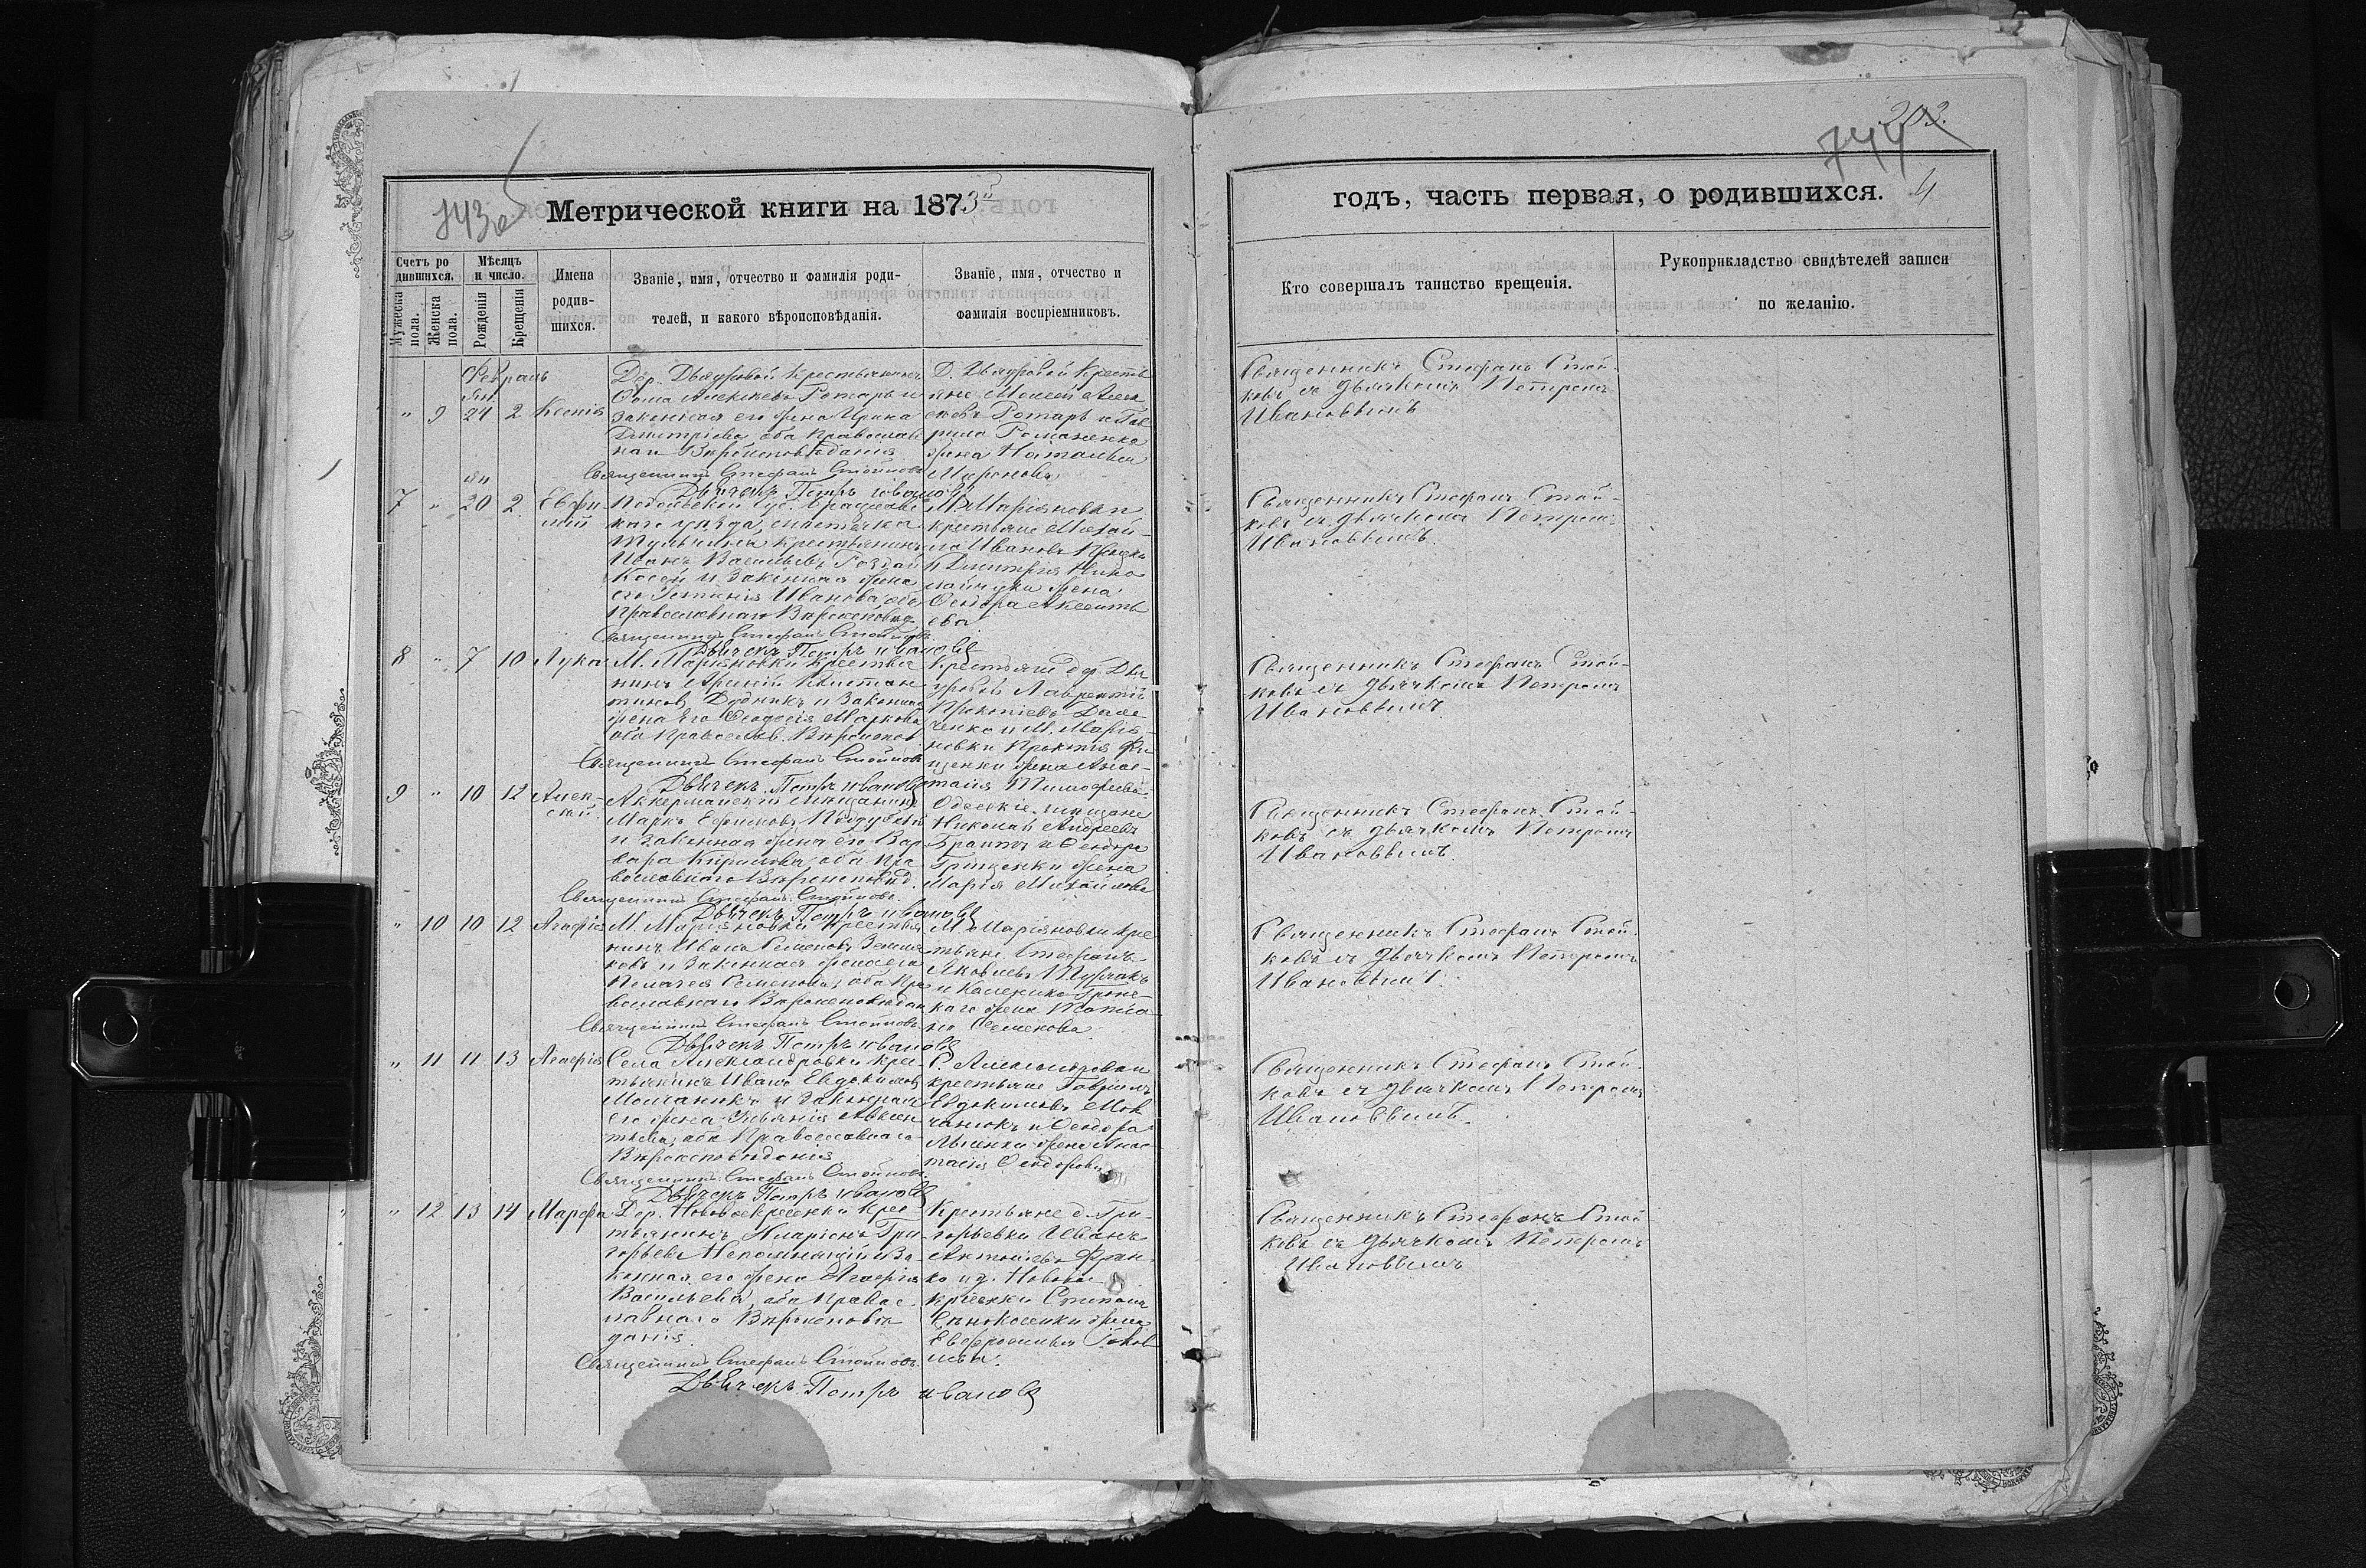 203.
744
743 об
Метрической книги на 1873й
годъ, часть первая, о родившихся. 4
Счетъ ро
дившихся.
Мужеска
пола.
Женска
пола.
Мѣсяцъ
и число.
Рожденія
Крещенія
Имена
родив-
шихся.
Званіе, имя, отчество и фамилія роди-
телей, и какого вѣроисповѣданія.
Званіе, имя, отчество и
фамилія воспріемниковъ.
Кто совершалъ таинство крещенія.
Рукоприкладство свидѣтелей записи
по желанію.
Февраль
Ян.
" 9 24 2 Ксенія
Дер. Крестьянинъ
Ѳома Алексѣевъ Ротарь и
законная его жена Ирина
Димитріева оба православ
наго Вѣроисповѣданія
Священникъ Стефанъ Стойковъ
Дьячекъ Петръ Ивановъ
Д. Крестья
не Моисей Алек
сѣевъ Ротарь и Гав
рила Романенка
жена Наталья
Миронова
Священникъ Стефанъ Стой-
ковъ съ дьячкомъ Петромъ
Ивановымъ
ян
7 " 20 2 Евфи
мій
Подольской Губ. Брацлавс
каго уѣзда, мѣстечка
крестьянинъ
Иванъ Васильевъ
и законная жена
его Іустинія Иванова оба
Православнаго Вѣроисповѣд.
Священникъ Стефанъ Стойковъ
Дьячекъ Петръ Ивановъ
М. Маріяновки
крестьяне Михай-
ло Ивановъ
и Димитрія Нико
лайчука жена
Ѳеодора Аксенть
ева
Священникъ Стефанъ Стой-
ковъ съ дьячкомъ Петромъ
Ивановымъ.
8 " 7 10 Лука
М. Маріяновки Крестья
нинъ Арсеній Констан
тиновъ Дудникъ и законная
жена Его Ѳеодосія Маркова
оба Православ. Вѣроиспов.
Священникъ Стефанъ Стойковъ
Дьячекъ Петръ Ивановъ
Крестьяне дер.
Лаврентій
Прокопіевъ
ченко и М. Марія-
новки Прокопія
щенки жена Анас-
тасія Тимофеева.
Священникъ Стефанъ Стой-
ковъ съ дьячкомъ Петромъ
Ивановымъ
9 " 10 12 Алек-
сѣй
Аккерманскій мѣщанинъ
Маркъ Ефимовъ
и законная жена его Вар
вара Кирилова, оба Пра
вославнаго Вѣроисповѣд.
Священникъ Стефанъ Стойковъ.
Дьячекъ Петръ Ивановъ
Одесскіе мѣщане
Николай Андреевъ
и Ѳеодора
Грищенки жена
Марія Михайлова
Священникъ Стефанъ Стой-
ковъ съ дьячкомъ Петромъ
Ивановымъ.
" 10 10 12 Агафія
М. Маріяновки Крестья
нинъ Иванъ Семеновъ
и законная жена его
Пелагея Семенова, оба Пра
вославнаго Вѣроисповѣдан
Священникъ Стефанъ Стойковъ
Дьячекъ Петръ Ивановъ
М. Маріяновки кре
стьяне Стефанъ
Яковлевъ
и
жена
Семенова
Священникъ Стефанъ Стой-
ковъ съ дьячкомъ Петромъ
Ивановымъ.
" 11 11 13 Агафія
Села Александровки крес
тьянинъ Иванъ Евдокимовъ
Молчанюкъ и законная
его жена Ульянія Авксен
тьева, оба Православнаго
Вѣроисповѣданія
Священникъ Стефанъ Стойковъ
Дьячекъ Петръ Ивановъ
С. Александровки
крестьяне Гавріилъ
Евдокимовъ Мол
чанюкъ и Ѳеодора
жена Анас-
тасія Ѳеодорова
Священникъ Стефанъ Стой-
ковъ съ дьячкомъ Петромъ
Ивановымъ.
" 12 13 14 Марфа
Дер. Нововоскресенки Крес
тьянинъ Иларіонъ Гри
горьевъ Непомнящій и за
конная его жена Агафія
Васильева, оба Правос-
лавнаго Вѣроисповѣ
данія
Священникъ Стефанъ Стойковъ.
Дьячекъ Петръ Ивановъ
Крестьяне д. Гри-
горьевки Иванъ
Антоніевъ Фран-
ко и д. Нововос
кресенки Степана
жена
Евфросинья Яков
лева.
Священникъ Стефанъ Стой
ковъ съ дьячкомъ Петромъ
Ивановымъ